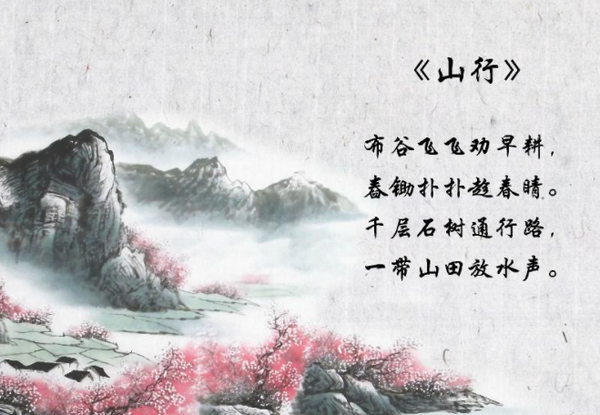 《山行》
布谷飞飞劝早耕，
舂锄扑扑趁春晴。
千层石树通行路，
一带山田放水声。